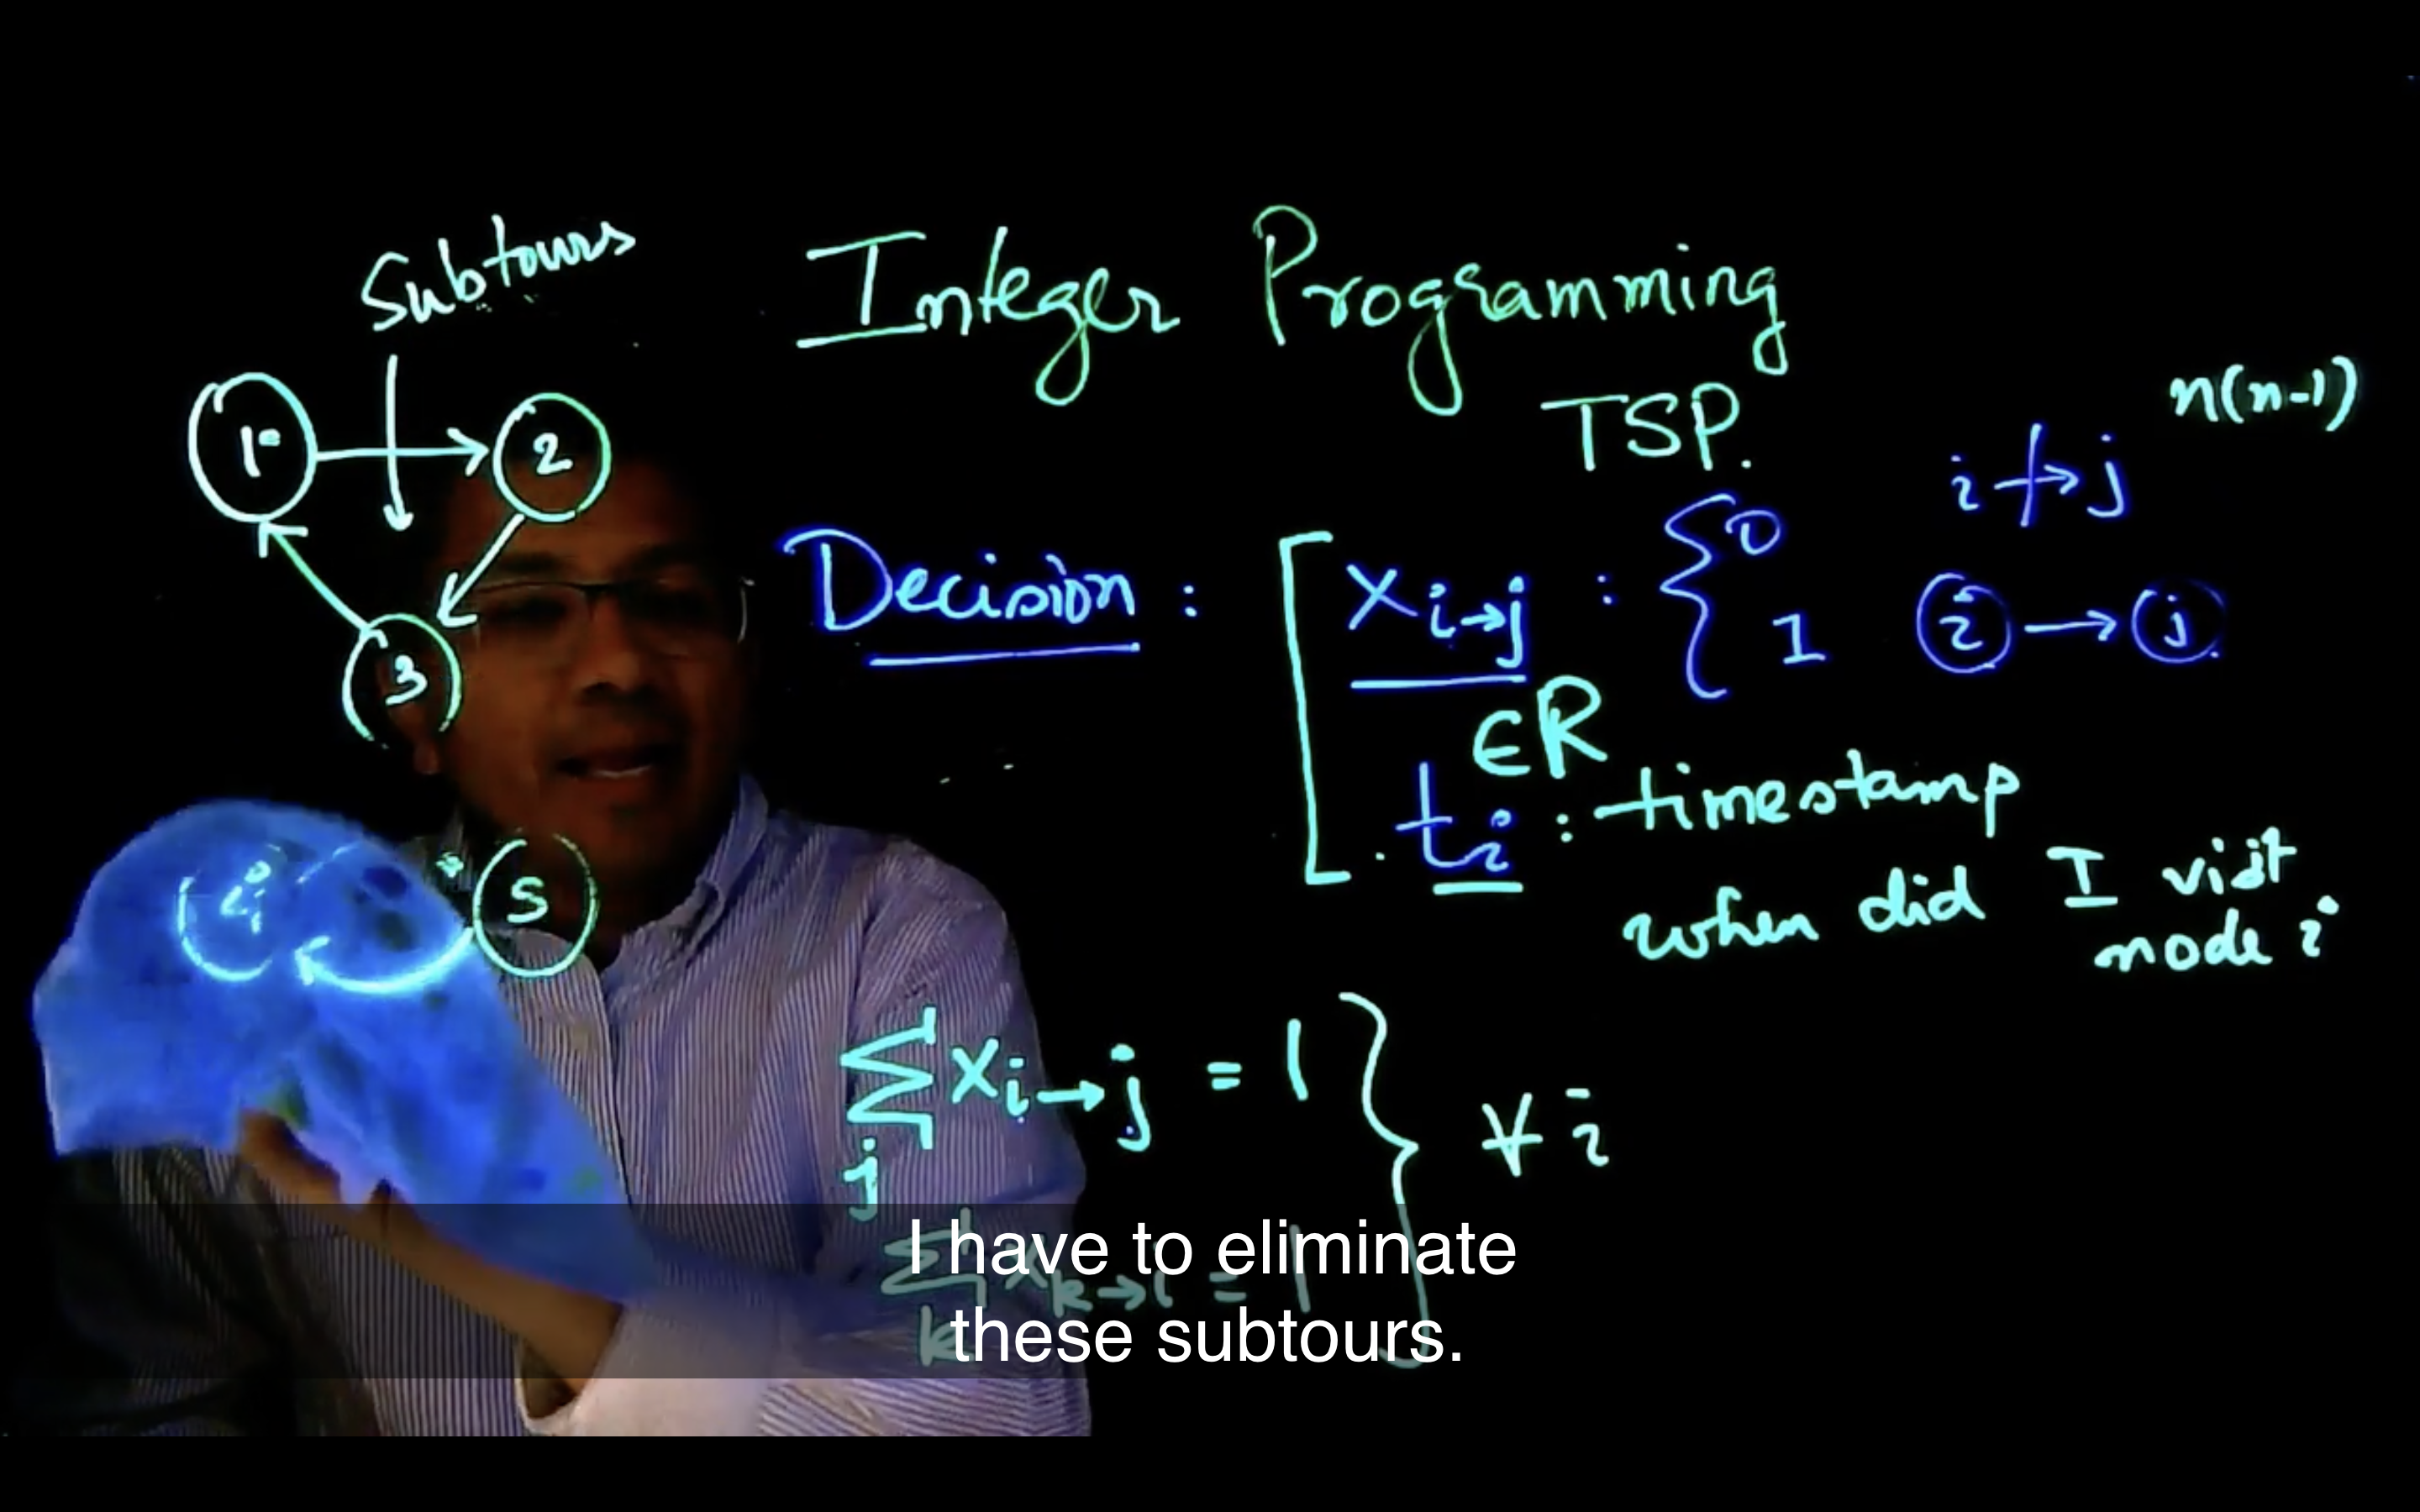 Subtours
Integer Programming
TSP.
n(n-1)
1 2
3
4 5
Decision : [ x_{i→j} : { 0 i ↛ j
1 i → j
∈ R
t_i : timestamp
when did I visit
node i
∑_j x_{i→j} = 1 } ∀ i
∑_k x_{k→i} = 1
I have to eliminate
these subtours.